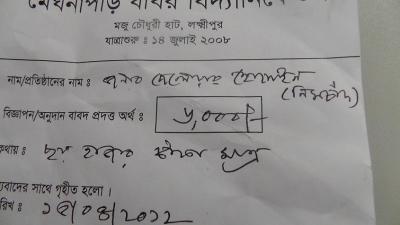 মেঘনাপাড় বাবর বিদ্যানিকেতন
মজু চৌধুরী হাট, লক্ষ্মীপুর
যাত্রাশুরু : ১৪ জুলাই ২০০৮
নাম/প্রতিষ্ঠানের নাম : জনাব দেলোয়ার হোসাইন
বিজ্ঞাপন/অনুদান বাবদ প্রদত্ত অর্থ : ৬,০০০/-
কথায় : ছয় হাজার টাকা মাত্র
্যবাদের সাথে গৃহীত হলো।
রিখ : ১৫/০৪/২০১২